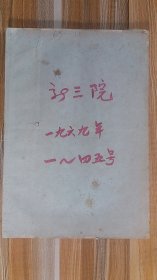 新三院
一九六九年
一～四五号